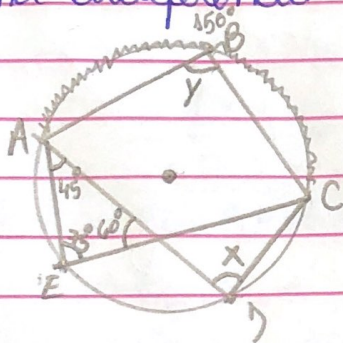 150°
B
y
A
45°
C
75° 60°
x
E
D